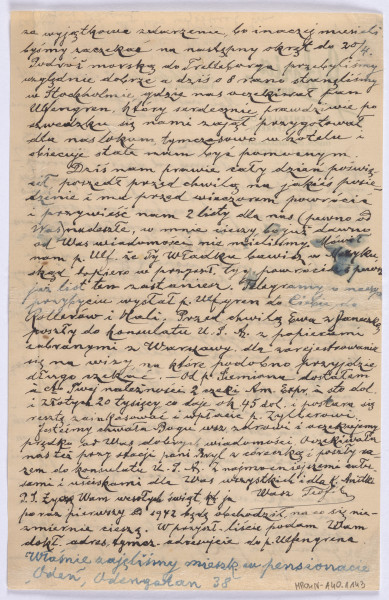 za wyjątkowe zdarzenie, bo inaczej mieli
byśmy zaczekać na następny okręt do 20/4.
Podróż morską do Trelleborga przebyliśmy
względnie dobrze a dziś o 8 rano stanęliśmy
w Stockholmie, gdzie nas oczekiwał Pan
Ulfengren, który serdecznie, prawdziwie po
szwedzku się nami zajął przygotował
dla nas lokum tymczasowe w hotelu i
obiecuje stale nam być pomocnym.
Dziś nam prawie cały dzień poświę
cił, poszedł przed chwilą na jakieś posie
dzenie i ma przed wieczorem powrócić
i przywieść nam 2 listy dla nas (pewno od
Was) nadeszłe, co mnie cieszy bo już dawno
od Was wiadomości nie mieliśmy. Mówił
nam p. Ulf. że Ty Władku bawisz w Meksyku
skąd dopiero w przyszł. tyg. powrócisz i pewno
już list ten zastaniesz. Telegramy o naszym
przybyciu wysłał p. Ulfgren do Ciebie do
Rollerów i Hali. Przed chwilą Ewa z Janeczką
poszły do konsulatu U.S.A. z papierami
zabranymi z Warszawy dla zarejestrowania
się na wizy, na które podobno przyjdzie
długo czekać. Od p. Siemiana dostałem
z Twej należności 2 czeki Am. Expr. a sto dol.
i złotych 20 tysięcy co daje ok 45 dol. i postara się
resztę zainkasować i wpłacić p. Zylberowi.
Jesteśmy chwała Bogu wsz. zdrowi i oczekujemy
prędko od Was dobrych wiadomości. Oczekiwała
nas też przy stacji pani Bryl z córeczką i poszły ra
zem do konsulatu U.S.A. Z najmocniejszemi cału
sami i uściskami dla Was wszystkich i dla
P.S. Życzę Wam wesołych świąt Wasz Teofil
po raz pierwszy od 1942 będę obchodził na co się nie
zmiernie cieszę. W przyszł. liście podam Wam
dokł. adres tymcz. adresujcie do p. Ulfengrena
Właśnie zajęliśmy mieszk. w pensionacie
"Oden", Odengatan 38
MPOLIN-A40.1.143